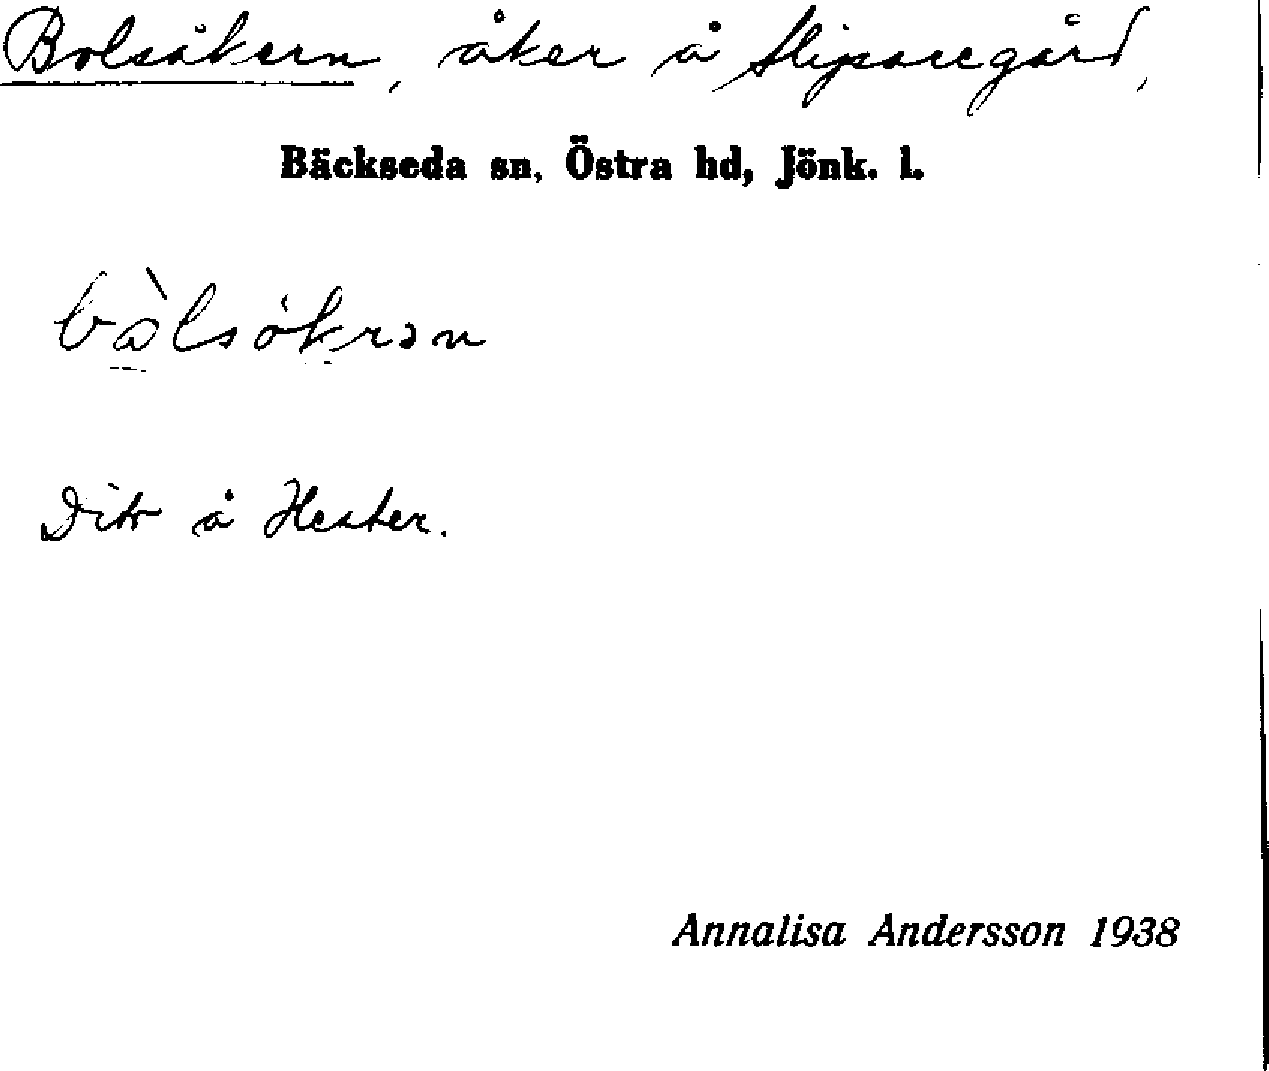 Bolsåkern, åker å Slipsaregård,
Bäckseda sn, Östra hd, Jönk. l.
bàlsókrən
Dito å Hester.
Annalisa Andersson 1938